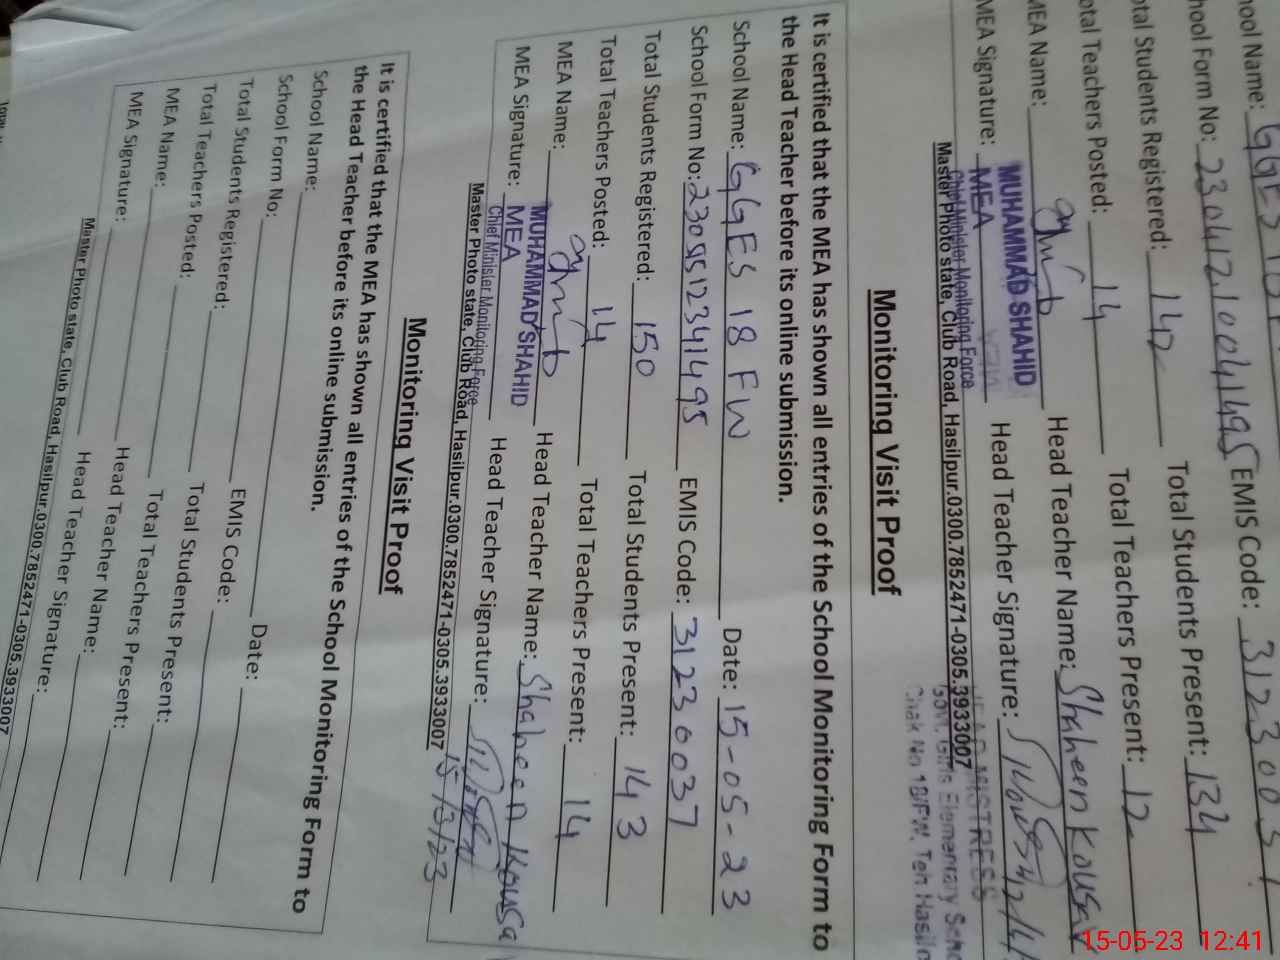 School Name: GGES 18 F
School Form No: 230412.10041495 EMIS Code: 31230037
Total Students Registered: 142 Total Students Present: 134
Total Teachers Posted: 14 Total Teachers Present: 12
MEA Name: Head Teacher Name: Shaheen Kousar
MUHAMMAD SHAHID
MEA Signature: MEA Head Teacher Signature:
Chief Minister Monitoring Force
Master Photo state, Club Road, Hasilpur.0300.7852471-0305.3933007
HEADMISTRESS
Govt. Girls Elementary Scho
Chak No 18/FW, Teh Hasilp
Monitoring Visit Proof
It is certified that the MEA has shown all entries of the School Monitoring Form to
the Head Teacher before its online submission.
School Name: GGES 18 FW Date: 15-05-23
School Form No: EMIS Code: 31230037
Total Students Registered: 150 Total Students Present: 143
Total Teachers Posted: 14 Total Teachers Present: 14
MEA Name: Head Teacher Name: Shaheen Kousa
MUHAMMAD SHAHID
MEA Signature: MEA Head Teacher Signature:
Chief Minister Monitoring Force
15/3/23
Master Photo state, Club Road, Hasilpur.0300.7852471-0305.3933007
Monitoring Visit Proof
It is certified that the MEA has shown all entries of the School Monitoring Form to
the Head Teacher before its online submission.
School Name: Date:
School Form No: EMIS Code:
Total Students Registered: Total Students Present:
Total Teachers Posted: Total Teachers Present:
MEA Name: Head Teacher Name:
MEA Signature: Head Teacher Signature:
Master Photo state, Club Road, Hasilpur.0300.7852471-0305.3933007
15-05-23 12:41